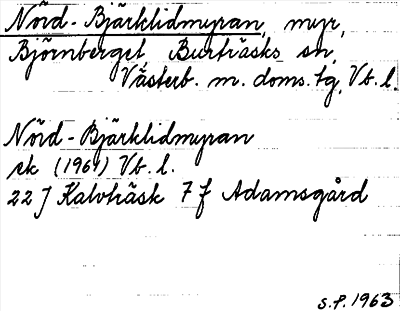 Nörd-Bjärklidmyran, myr,
Björnberget, Burträsks sn,
Västerb. m. doms. tg, Vb. l.
Nörd-Bjärklidmyran
ek (1961) Vb. l.
22 J Kalvträsk 7 f Adamsgård
S.P. 1963